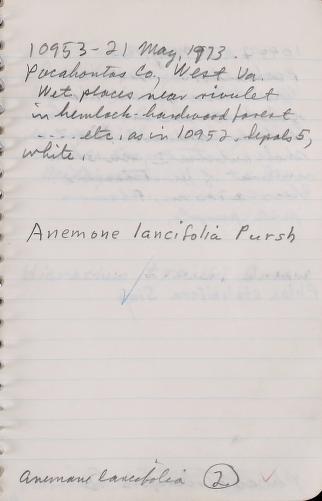 10953-21 May, 1973.
Pocahontas Co, West Va.
Wet places near rivulet
in hemlock-hardwood forest
..... etc. as in 10952. Sepals 5,
white.
Anemone lancifolia Pursh
Anemone lancifolia 2